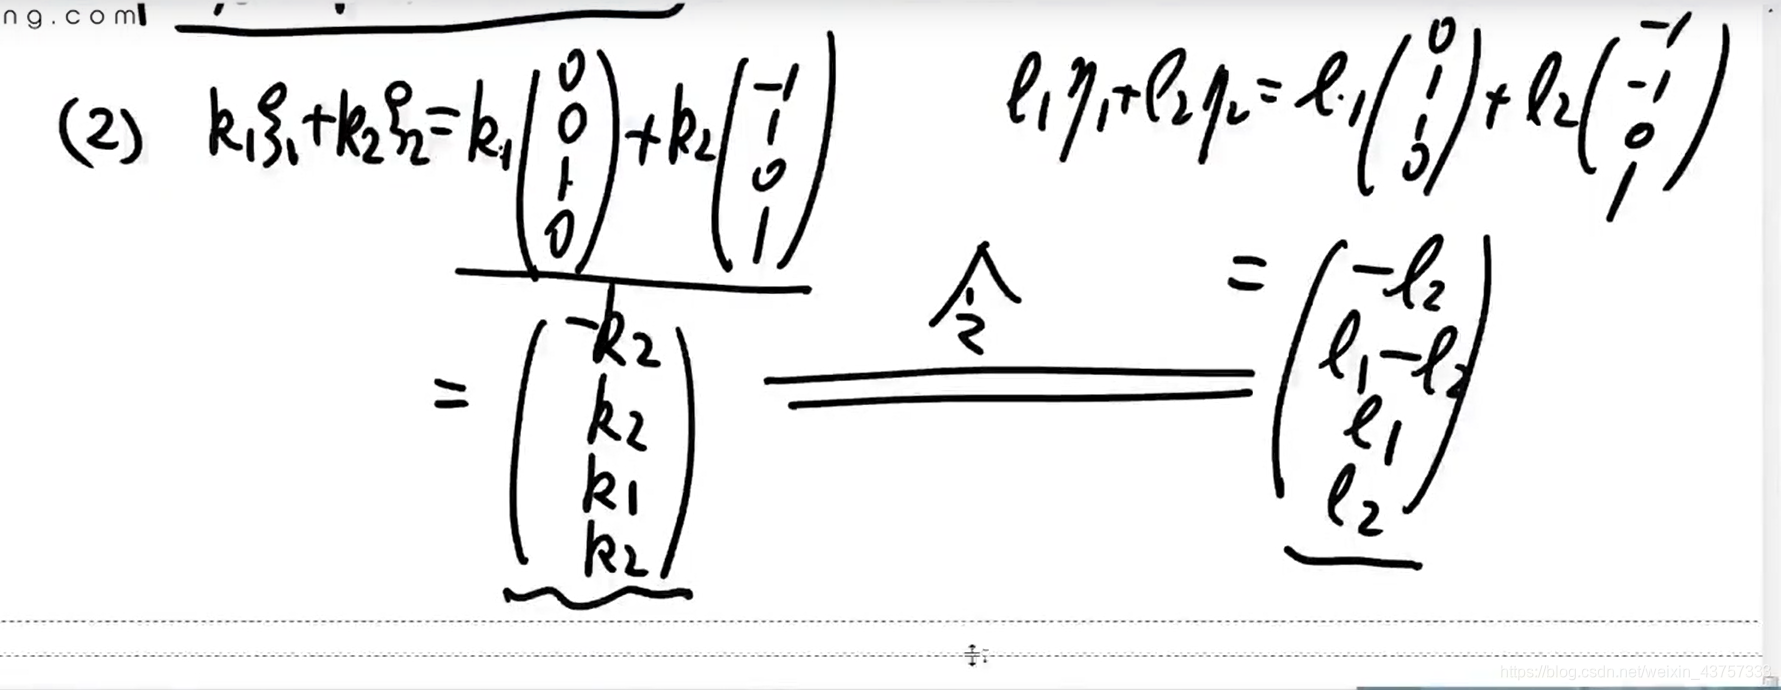 ng.com
(2) k₁ξ₁+k₂ξ₂=k₁(0 0 1 0)+k₂(-1 1 0 1)
l₁η₁+l₂η₂=l₁(0 1 1 0)+l₂(-1 -1 0 1)
=(-k₂ k₂ k₁ k₂)
令
=(-l₂ l₁-l₂ l₁ l₂)
https://blog.csdn.net/weixin_43757333